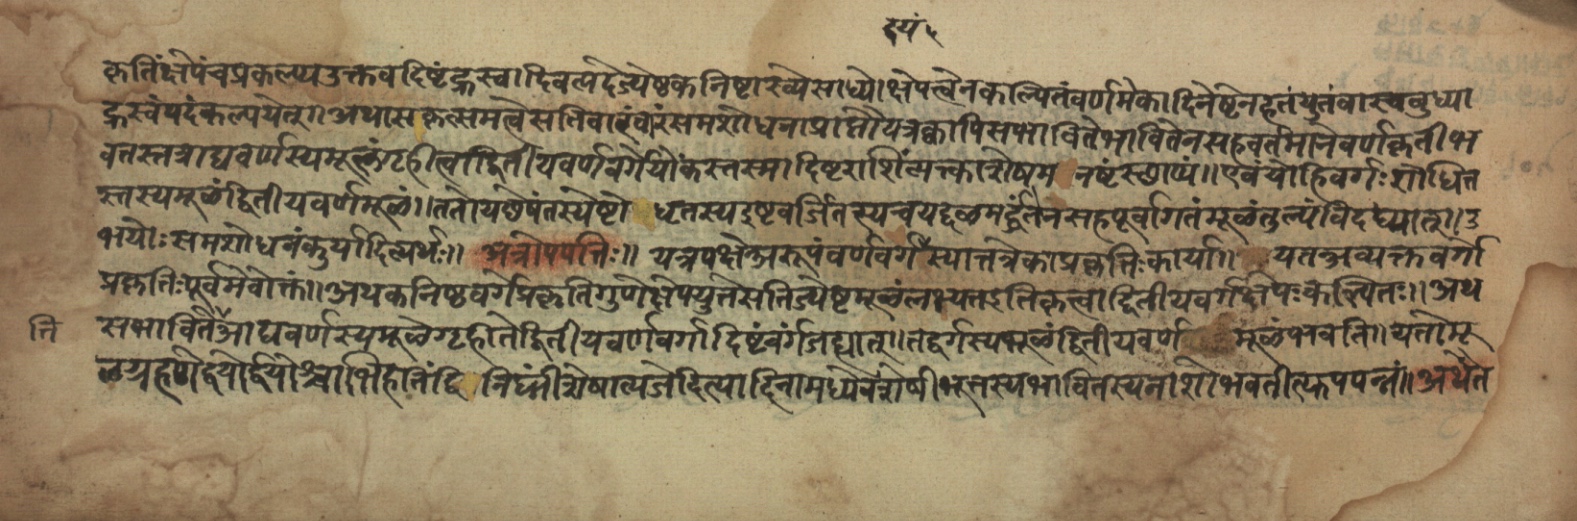 द्वयं
कृतिं क्षेपं च प्रकल्प्य उक्तवदिष्टं ह्रस्वादिवत्पदे ज्येष्ठकनिष्टाख्ये साध्ये। क्षेपत्वेन कल्पितं वर्णमेकादिनेष्टेन हतं युतं वा स्वबुध्या
ह्रस्वं पदं कल्पयेत्॥ अथासकृत्समत्वे सति वारंवारं समशोधना प्राप्तौ यत्र क्वापि सभाविते भावितेन सह वर्तमाने वर्णकृती भ
वतस्तत्राद्यवर्णस्य मूलं गृहीत्वा द्वितीयवर्णवर्गे योंकस्तस्मादिष्टराशिं त्यक्त्वा शेषम नष्टं स्थाप्यं॥ एवं योहि वर्गः शोधित
स्तस्य मूळं द्वितीयवर्णमूळं॥ ततो यछेषं तस्येष्टो धृतस्य इष्टवर्जितस्य च यद्दळमर्द्धं तेन सह पूर्वागतं मूळं तुल्यं विदध्यात्॥ उ
भयोः समशोधनं कुर्यादित्यर्थः॥ अत्रोपपत्तिः॥ यत्र पक्षे अरूपं वर्णवर्गं स्यात्तत्रैका प्रकृतिः कार्या॥ यत अव्यक्तवर्गो
प्रकृतिः पूर्वमेवोक्तं॥ अथ कनिष्ठवर्गे प्रकृतिगुणे क्षेपयुते सति ज्येष्टमूळं लभ्यत इति कृत्वा द्वितीयवर्ग क्षेपः कल्पितः॥ अथ
त्ति सभाविते आद्यवर्णस्य मूळे गृहीते द्वितीयवर्णवर्गादिष्टं वर्गं जह्यात्॥ तद्वर्गस्य मूळं द्वितीयवर्ण मूळं भवति॥ यतो मू
ळग्रहणे द्वयोर्द्वयोश्चाभिहतिं द्वि निघ्नीं शेषात्त्यजेदित्यादिना मध्ये शेषीभूतस्य भावितस्य नाशो भवतीत्युपपन्नं॥ अथैत